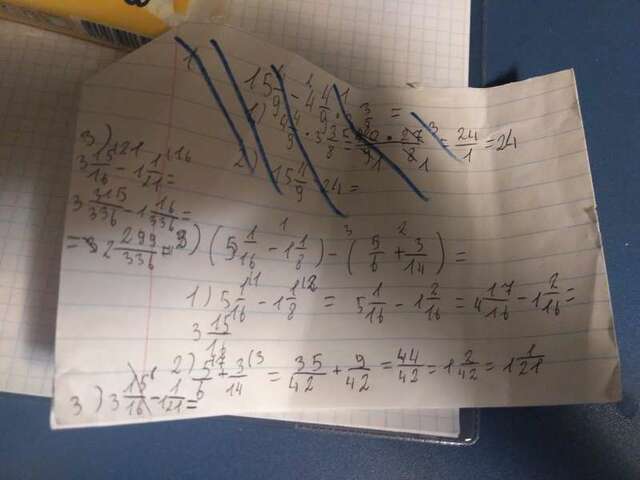 1
15 4/9 - 4 4/9 · 3 3/8 =
1) 4 4/9 · 3 3/8 = 40/9 · 27/8 = 24/1 = 24
2) 15 4/9 - 24 =
3)
3 15/16 - 1 1/21 =
3 315/336 - 1 16/336 =
= 2 299/336
3) (5 1/16 - 1 1/8) - (5/6 + 3/14) =
1) 5 1/16 - 1 1/8 = 5 1/16 - 1 2/16 = 4 17/16 - 1 2/16 =
3 15/16
2) 5/6 + 3/14 = 35/42 + 9/42 = 44/42 = 1 2/42 = 1 1/21
3) 3 15/16 - 1 1/21 =